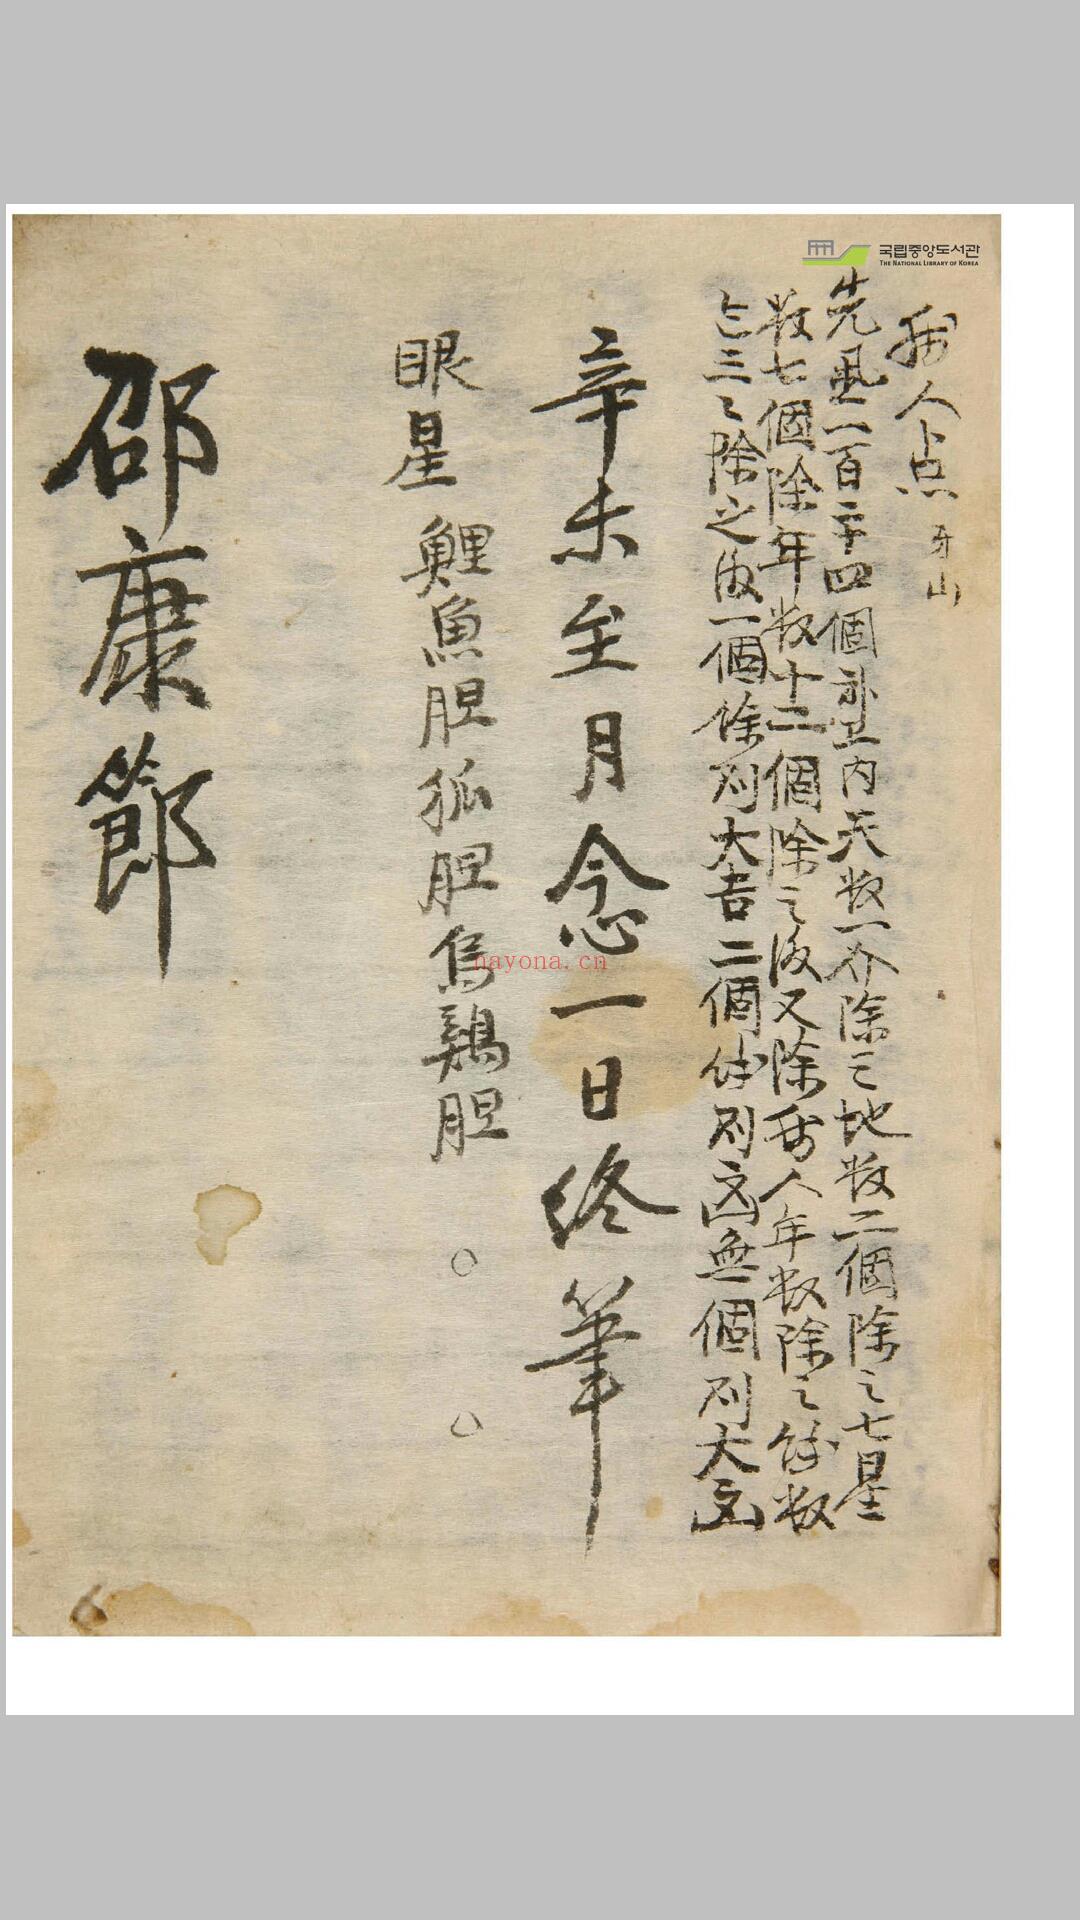 국립중앙도서관
THE NATIONAL LIBRARY OF KOREA
人占 牙山
先置一百二十四個 內天数一介除之地数二個除之七星
数七個除年数十二個除之後又除病人年数除之餘数
三〻除之後一個餘則大吉二個餘則凶無個則大凶
辛未至月念一日終筆
眼星 鯉魚胆狐胆烏鷄胆
邵康節
nayona.cn